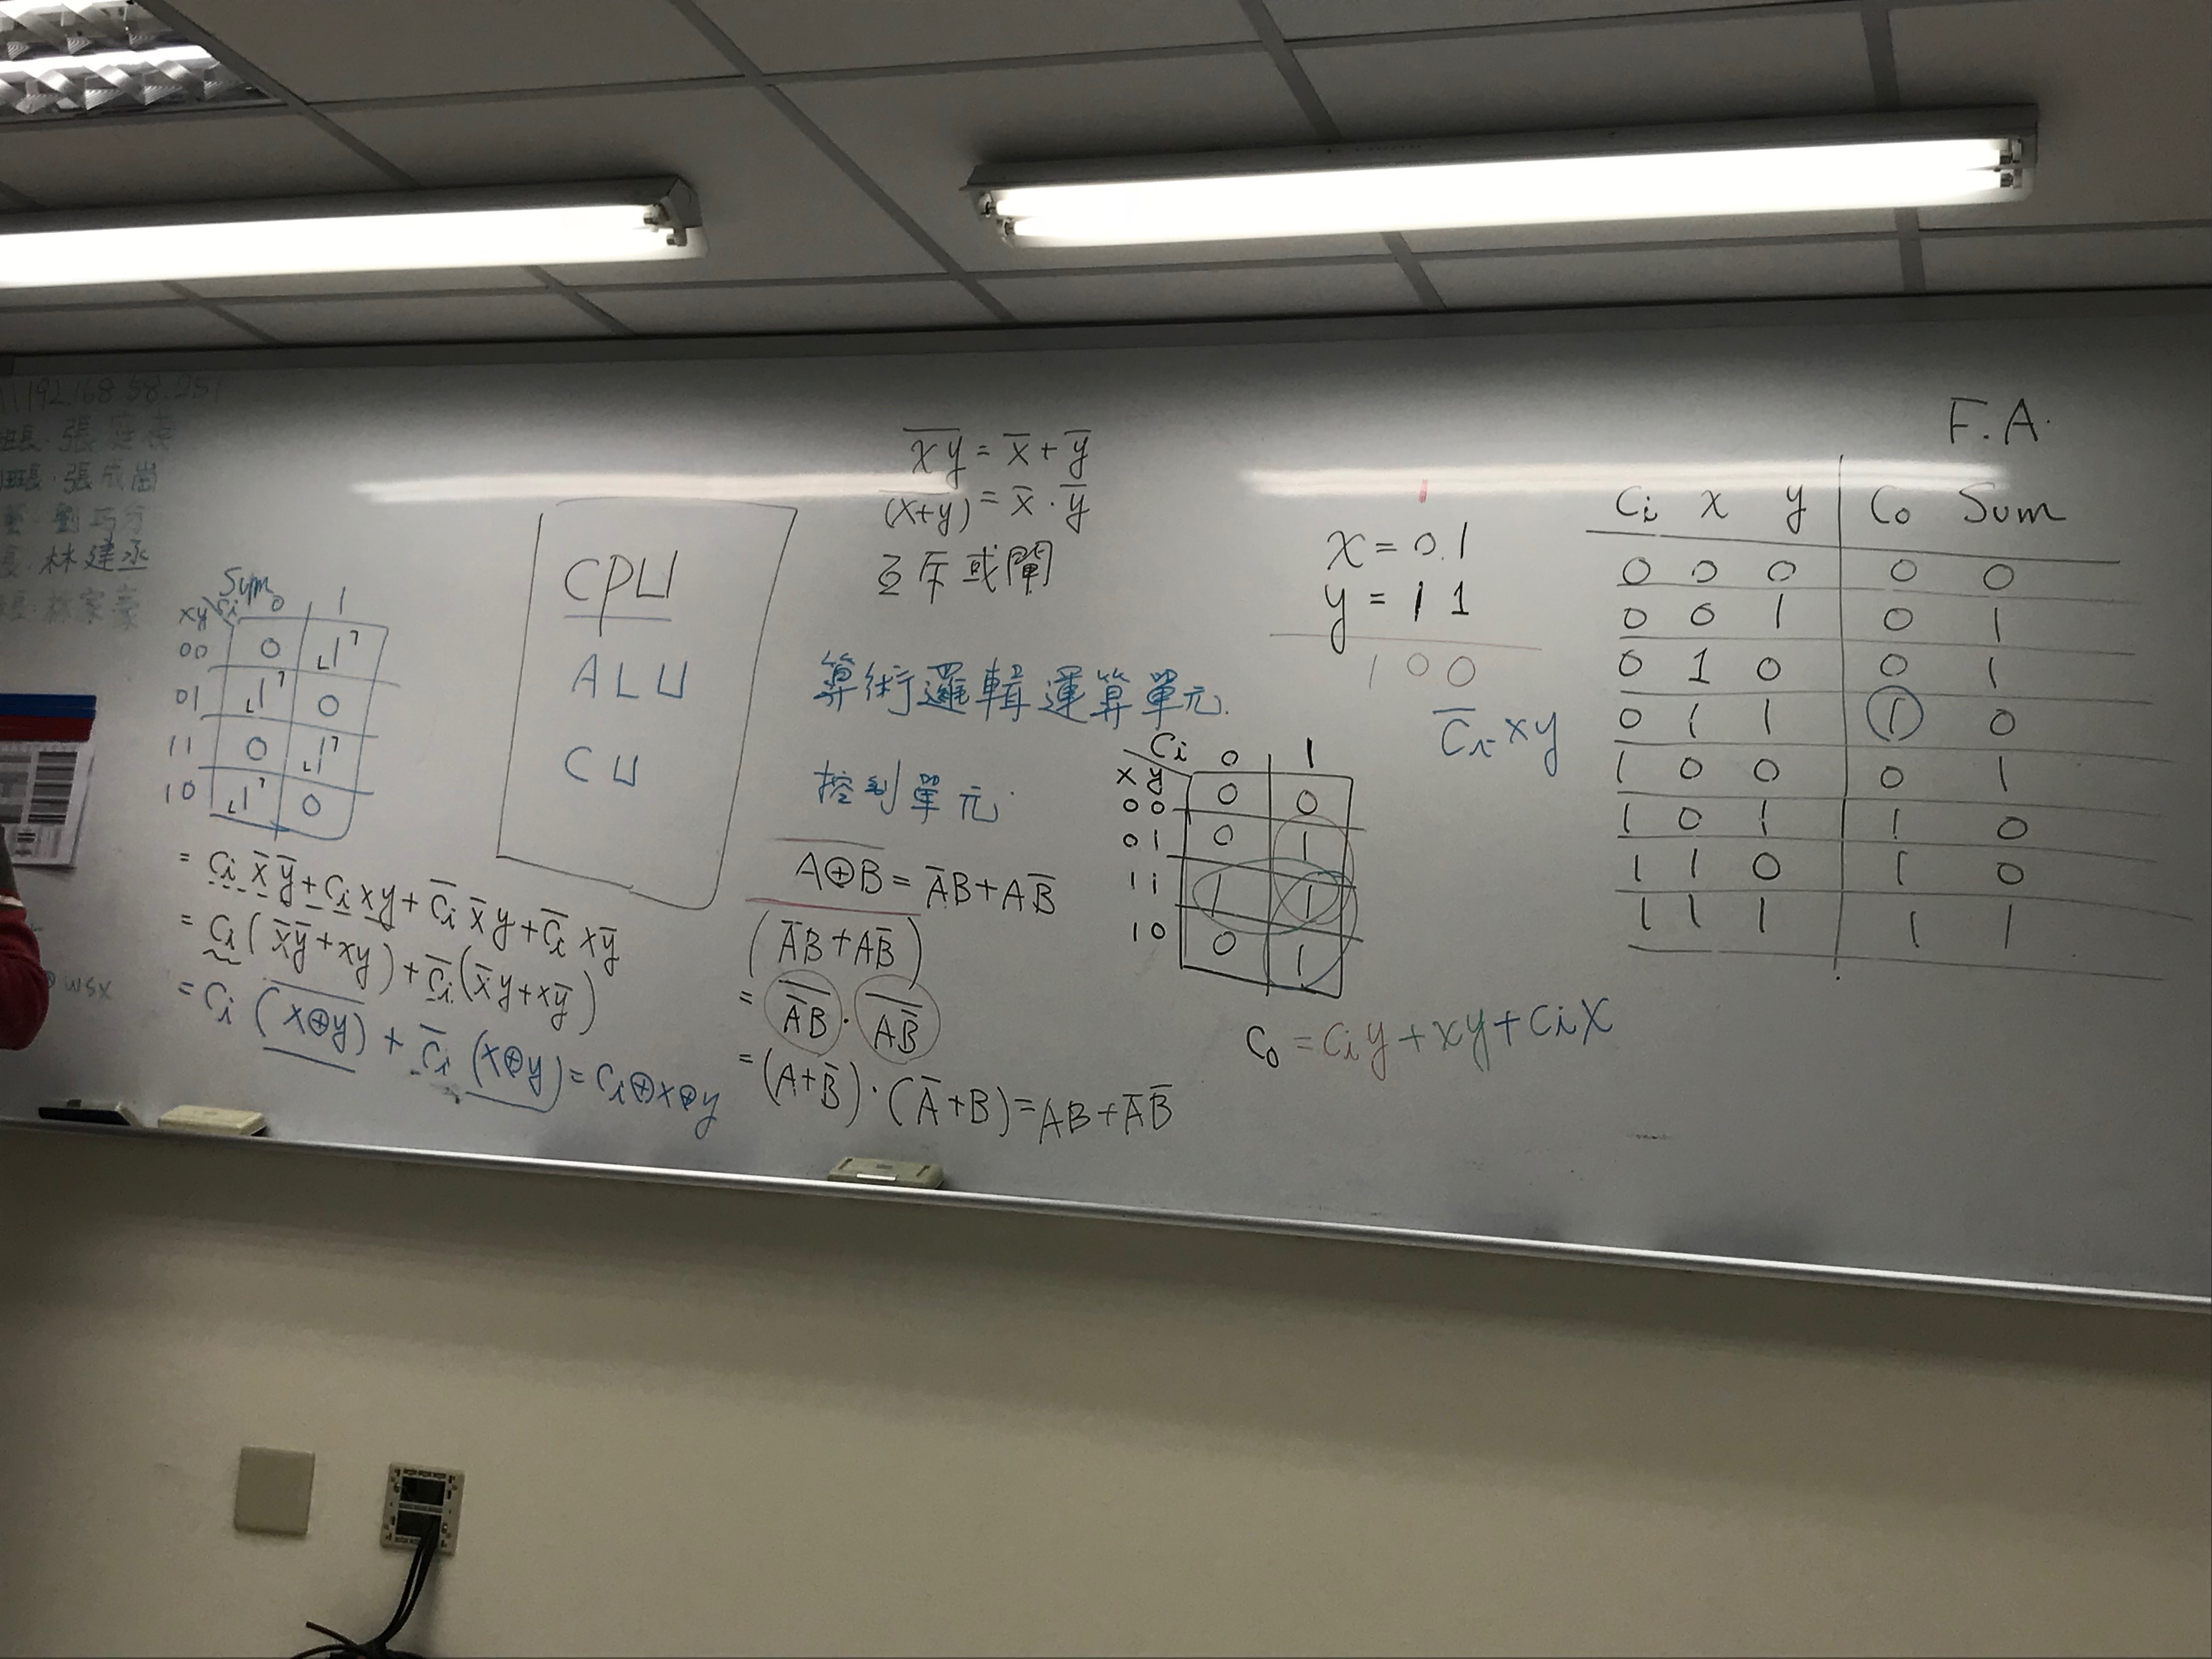 192.168.58.251
長.張庭
長.張成
劉巧
林建丞
林家豪
wsx
Sum
xy Ci 0 1
00 0 1
01 1 0
11 0 1
10 1 0
= Ci x̅ y̅ + Ci x y + C̅i x̅ y + C̅i x y̅
= Ci ( x̅ y̅ + xy ) + C̅i ( x̅ y + x y̅ )
= Ci \overline{(x⊕y)} + C̅i (x⊕y) = Ci⊕x⊕y
CPU
ALU
CU
\overline{xy} = x̅ + y̅
\overline{(x+y)} = x̅ · y̅
互斥或閘
算術邏輯運算單元.
控制單元.
\overline{A⊕B} = A̅B + AB̅
\overline{(A̅B + AB̅)}
= \overline{A̅B} · \overline{AB̅}
= (A+B̅)·(A̅+B) = AB + A̅B̅
1
x = 0.1
y = 1 1
1 0 0
C̅i x y
Ci 0 1
x y
0 0 0 0
0 1 0 1
1 1 1 1
1 0 0 1
Co = Ci y + xy + Ci x
F.A.
Ci x y Co Sum
0 0 0 0 0
0 0 1 0 1
0 1 0 0 1
0 1 1 1 0
1 0 0 0 1
1 0 1 1 0
1 1 0 1 0
1 1 1 1 1